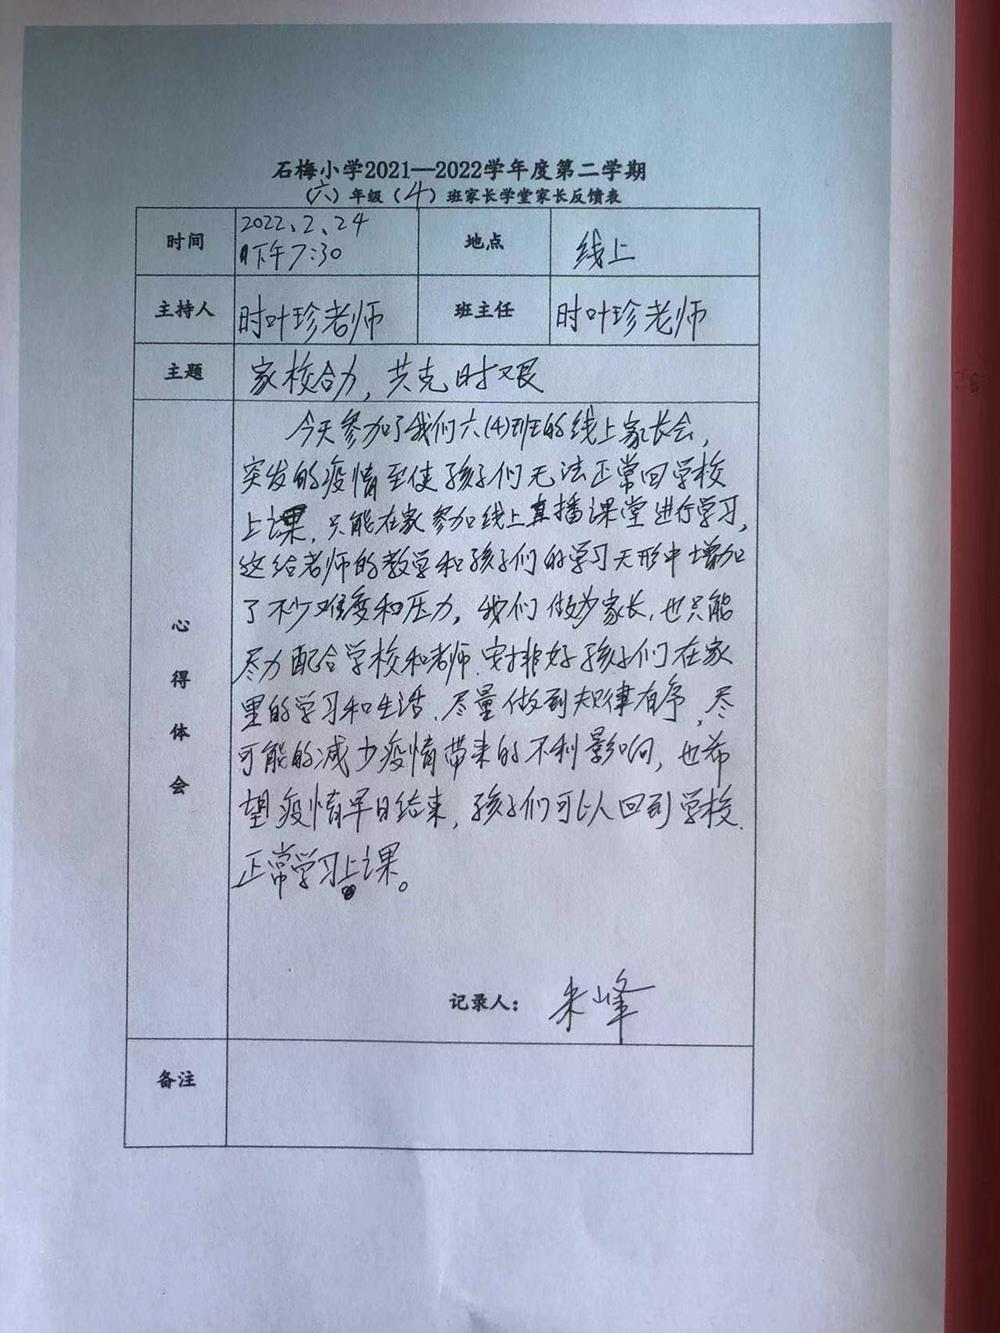 石梅小学2021—2022学年度第二学期
（六）年级（4）班家长学堂家长反馈表
时间 2022、2、24 地点 线上
下午7:30
主持人 时叶珍老师 班主任 时叶珍老师
主题 家校合力，共克时艰
心得体会
今天参加了我们六(4)班的线上家长会，
突发的疫情至使孩子们无法正常回学校
上课，只能在家参加线上直播课堂进行学习，
这给老师的教学和孩子们的学习无形中增加
了不少难度和压力，我们做为家长，也只能
尽力配合学校和老师，安排好孩子们在家
里的学习和生活，尽量做到规律有序，尽
可能的减少疫情带来的不利影响，也希
望疫情早日结束，孩子们可以回到学校
正常学习上课。
记录人： 朱峰
备注